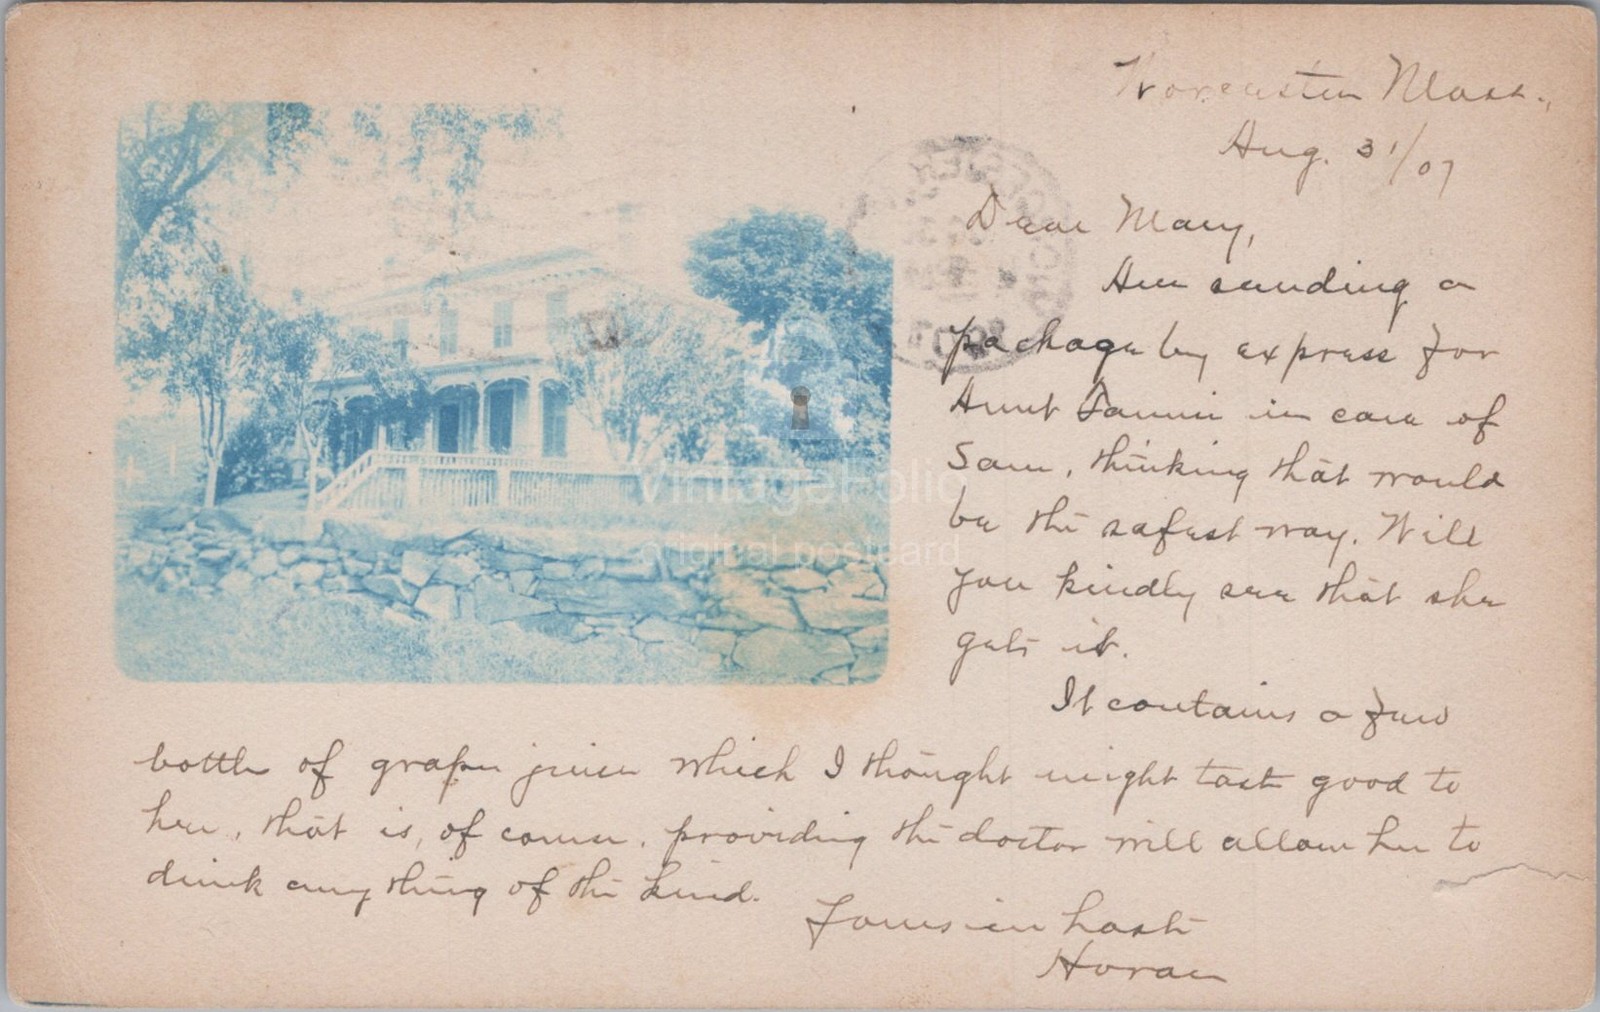 Worcester Mass.,
Aug. 31/07
Dear Mary,
Am sending a
package by express for
Aunt Fannie in care of
Sam, thinking that would
be the safest way. Will
you kindly see that she
gets it.
It contains a few
bottle of grape juice which I thought might tast good to
her, that is, of course, providing the doctor will allow her to
drink any thing of the kind.
Yours in hast
VintageFolio
original postcard